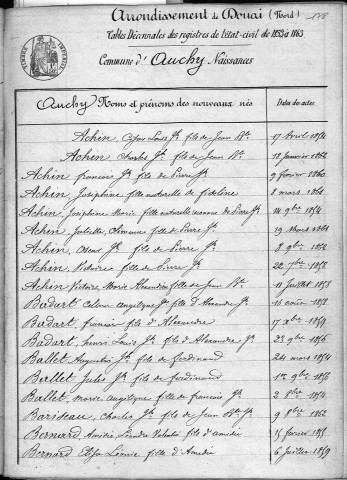 Arrondissement de Douai (Nord)
Tables Décennales des registres de l'état-civil de 1853 à 1863
Commune d'Auchy Naissances
Auchy Noms et prénoms des nouveaux nés Date des actes
Achin, Louis Jh fils de Jean Bte 17 Avril 1854
Achin, Charles Jh fils de Jean Bte 18 janvier 1862
Achin, françois Jh fils de Pierre Jh 9 février 1860
Achin, Joséphine fille naturelle de 8 mars 1861
Achin, Joséphine Marie fille naturelle Pierre Jh 14 9bre 1854
Achin, Juliette, Clémence fille de Pierre Jh 19 Mars 1861
Achin, fils de Pierre Jh 8 9bre 1862
Achin, Victoire fille de Pierre Jh 22 7bre 1858
Achin, Victoire, Marie Alexandrine fille de Jean Bte 18 Juillet 1858
Badart, Angélique Jh fille d'Alexandre Jh 16 août 1858
Badart, francois fils d'Alexandre 17 Xbre 1859
Badart, henri Louis Jh fils d'Alexandre Jh 23 9bre 1856
Ballet, Augustin Jh fils de ferdinand 24 mars 1854
Ballet, Jules Jh fils de ferdinand 1er 9bre 1856
Ballet, Marie Angélique fille de françois Jh 2 8bre 1854
Bariseau, Charles Jh fils de Jean Bte Jh 9 8bre 1862
Bernard, Amédée Léandre Valentin fils d'amédée 15 février 1855
Bernard Elisa Léonie fille d'Amédée 6 juillet 1859